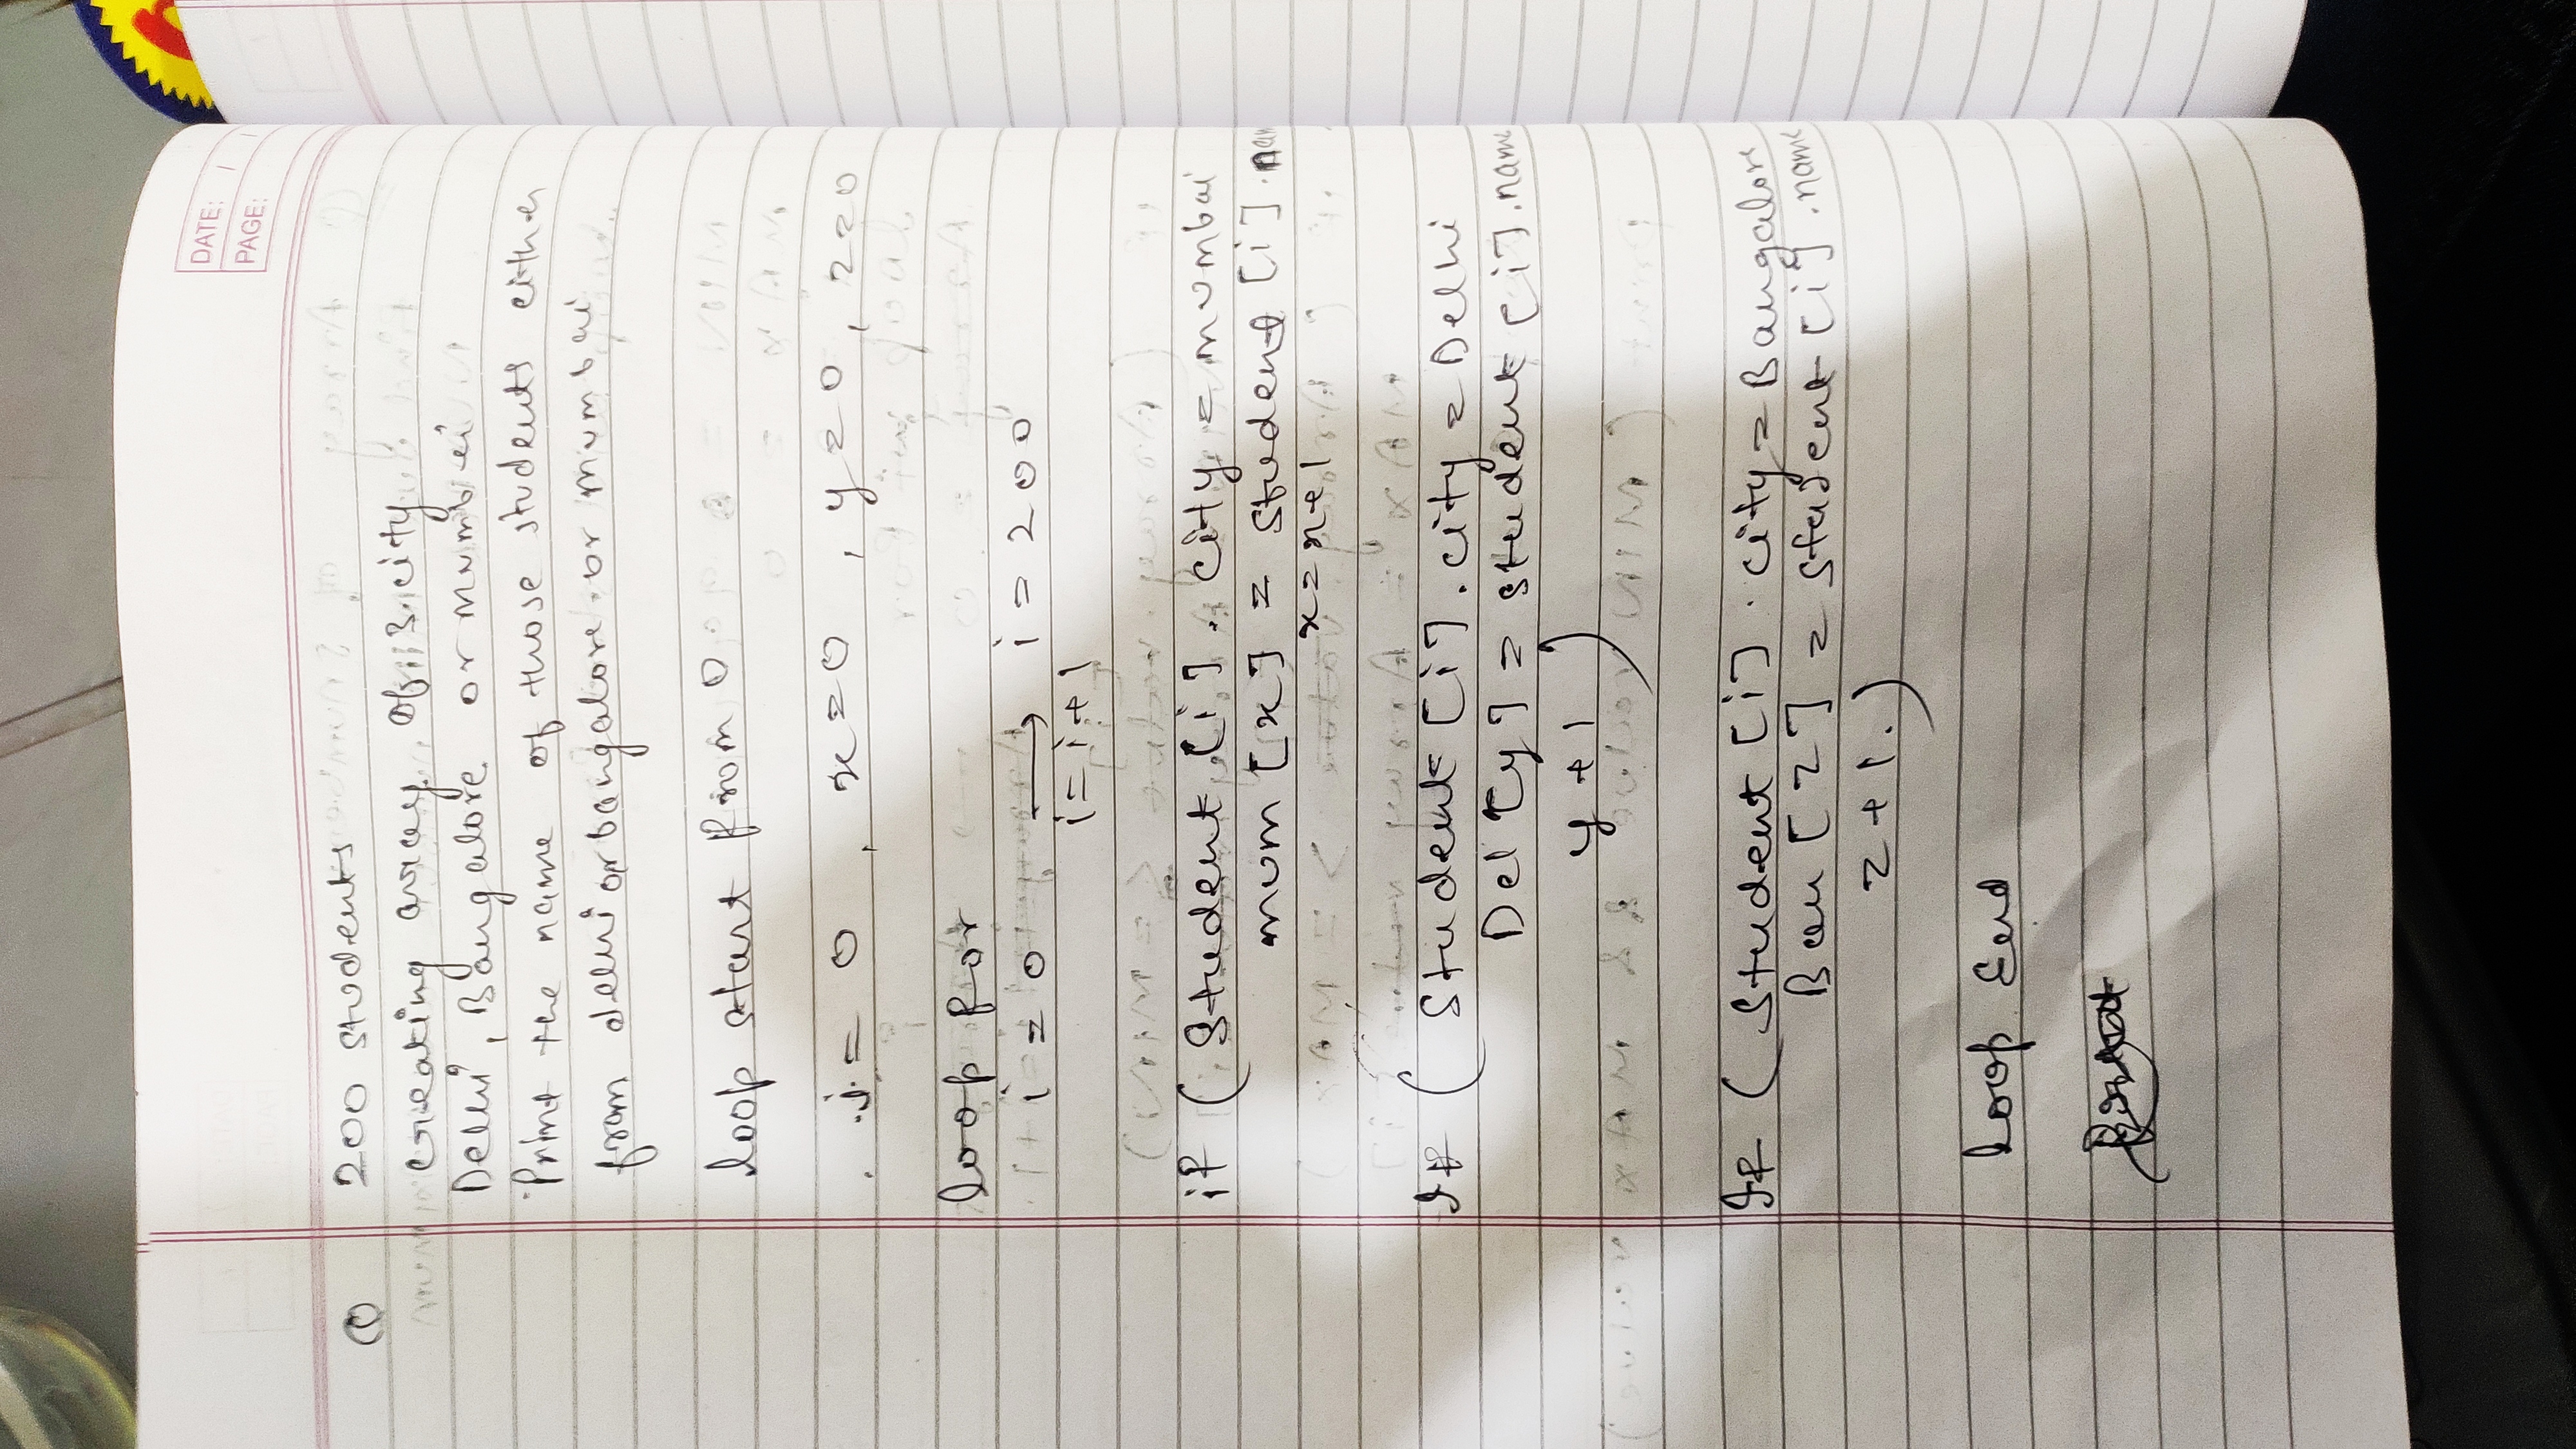 DATE: / /
PAGE:
Q 200 students
creating array of 3 city
Delhi, Bangalore or mumbai
Print the name of those students either
from delhi or bangalore or mumbai
loop start from 0
i = 0 , x = 0 , y = 0 , z = 0
loop for
i = 0 → i = 200
i = i + 1
if ( Student [i] . city = mumbai
mum [x] = student [i] . nam
x = x + 1
If ( Student [i] . city = Delhi
Del [y] = student [i] . name
y + 1 )
If ( Student [i] . city = Bangalore
Ban [z] = student [i] . name
z + 1 . )
loop End